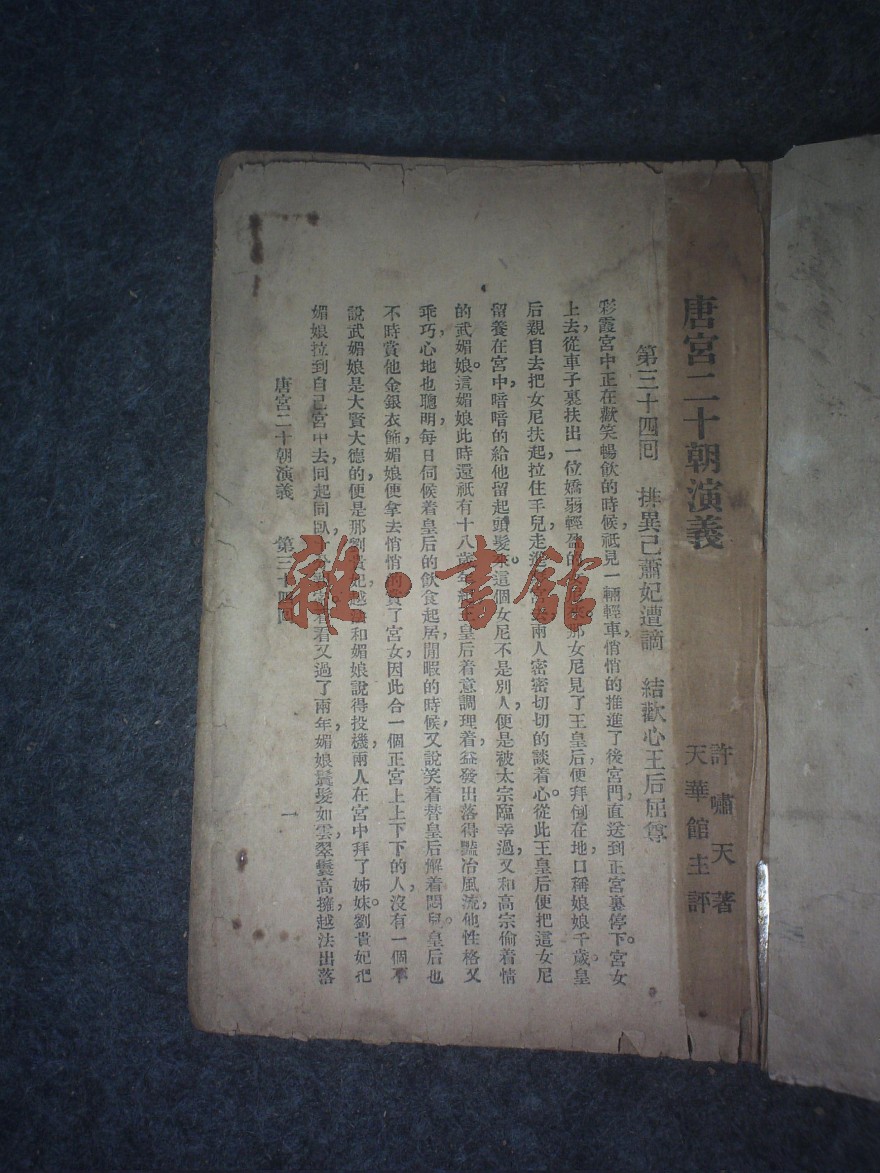 唐宮二十朝演義
許嘯天著
天華館主評
第三十四回　排異己蕭妃遭謫　結歡心王后屈尊
彩霞宮中正在歡笑暢飲的時候，祇見一輛輕車，悄悄的推進了後宮門，直送到正宮裏停下。宮女
上去，從車子裏扶出一位嬌弱輕盈的 那女尼見了王皇后，便拜倒在地，口稱娘娘千歲。皇
后親自去把女尼扶起，拉住手兒，走進 兩人密密切切的談着心。從此王皇后便把這女尼
留養在宮中，暗暗的給他留起頭髮來。這個女尼不是別人，便是被太宗臨幸過，又和高宗偷着情
的武媚娘。這媚娘此時還祇有十八歲年 皇后着意調理着，益發出落得豔冶風流，他性格又
乖巧，心地也聰明，每日伺候着皇后的飲食起居，閒暇的時候，又說笑着替皇后解着悶兒。皇后也
不時賞他金銀衣飾，媚娘便拿去悄悄的賞了宮女，因此合一個正宮上上下下的人，沒有一個不
說武媚娘是大賢大德的。便是那劉貴妃，越 和媚娘說得投機，兩人在宮中拜了姊妹，劉貴妃把
媚娘拉到自己宮中去，同起同臥 看看又過了兩年，媚娘鬢髮如雲，翠鬟高擁，越法出落
唐宮二十朝演義　第三十四回　一
雜·書館